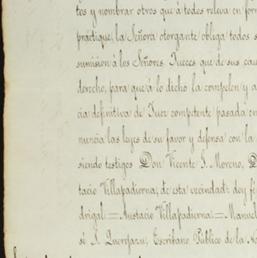 tos y nombrar otros que á todos releva en for
práctique, la Señora otorgante obliga todos s
sumision á los Señores Jueces que de sus cau
derecho, para que á lo dicho la compelan y a
cia definitiva de Juez competente pasada en
nuncia las leyes de su favor y defensa con la
siendo testigos Don Vicente S. Moreno, D
tacio Villapadierna, de esta vecindad: doy fe
drigal = Eustacio Villapadierna = Manuel
sé A. Querejazu, Escribano Público de la N